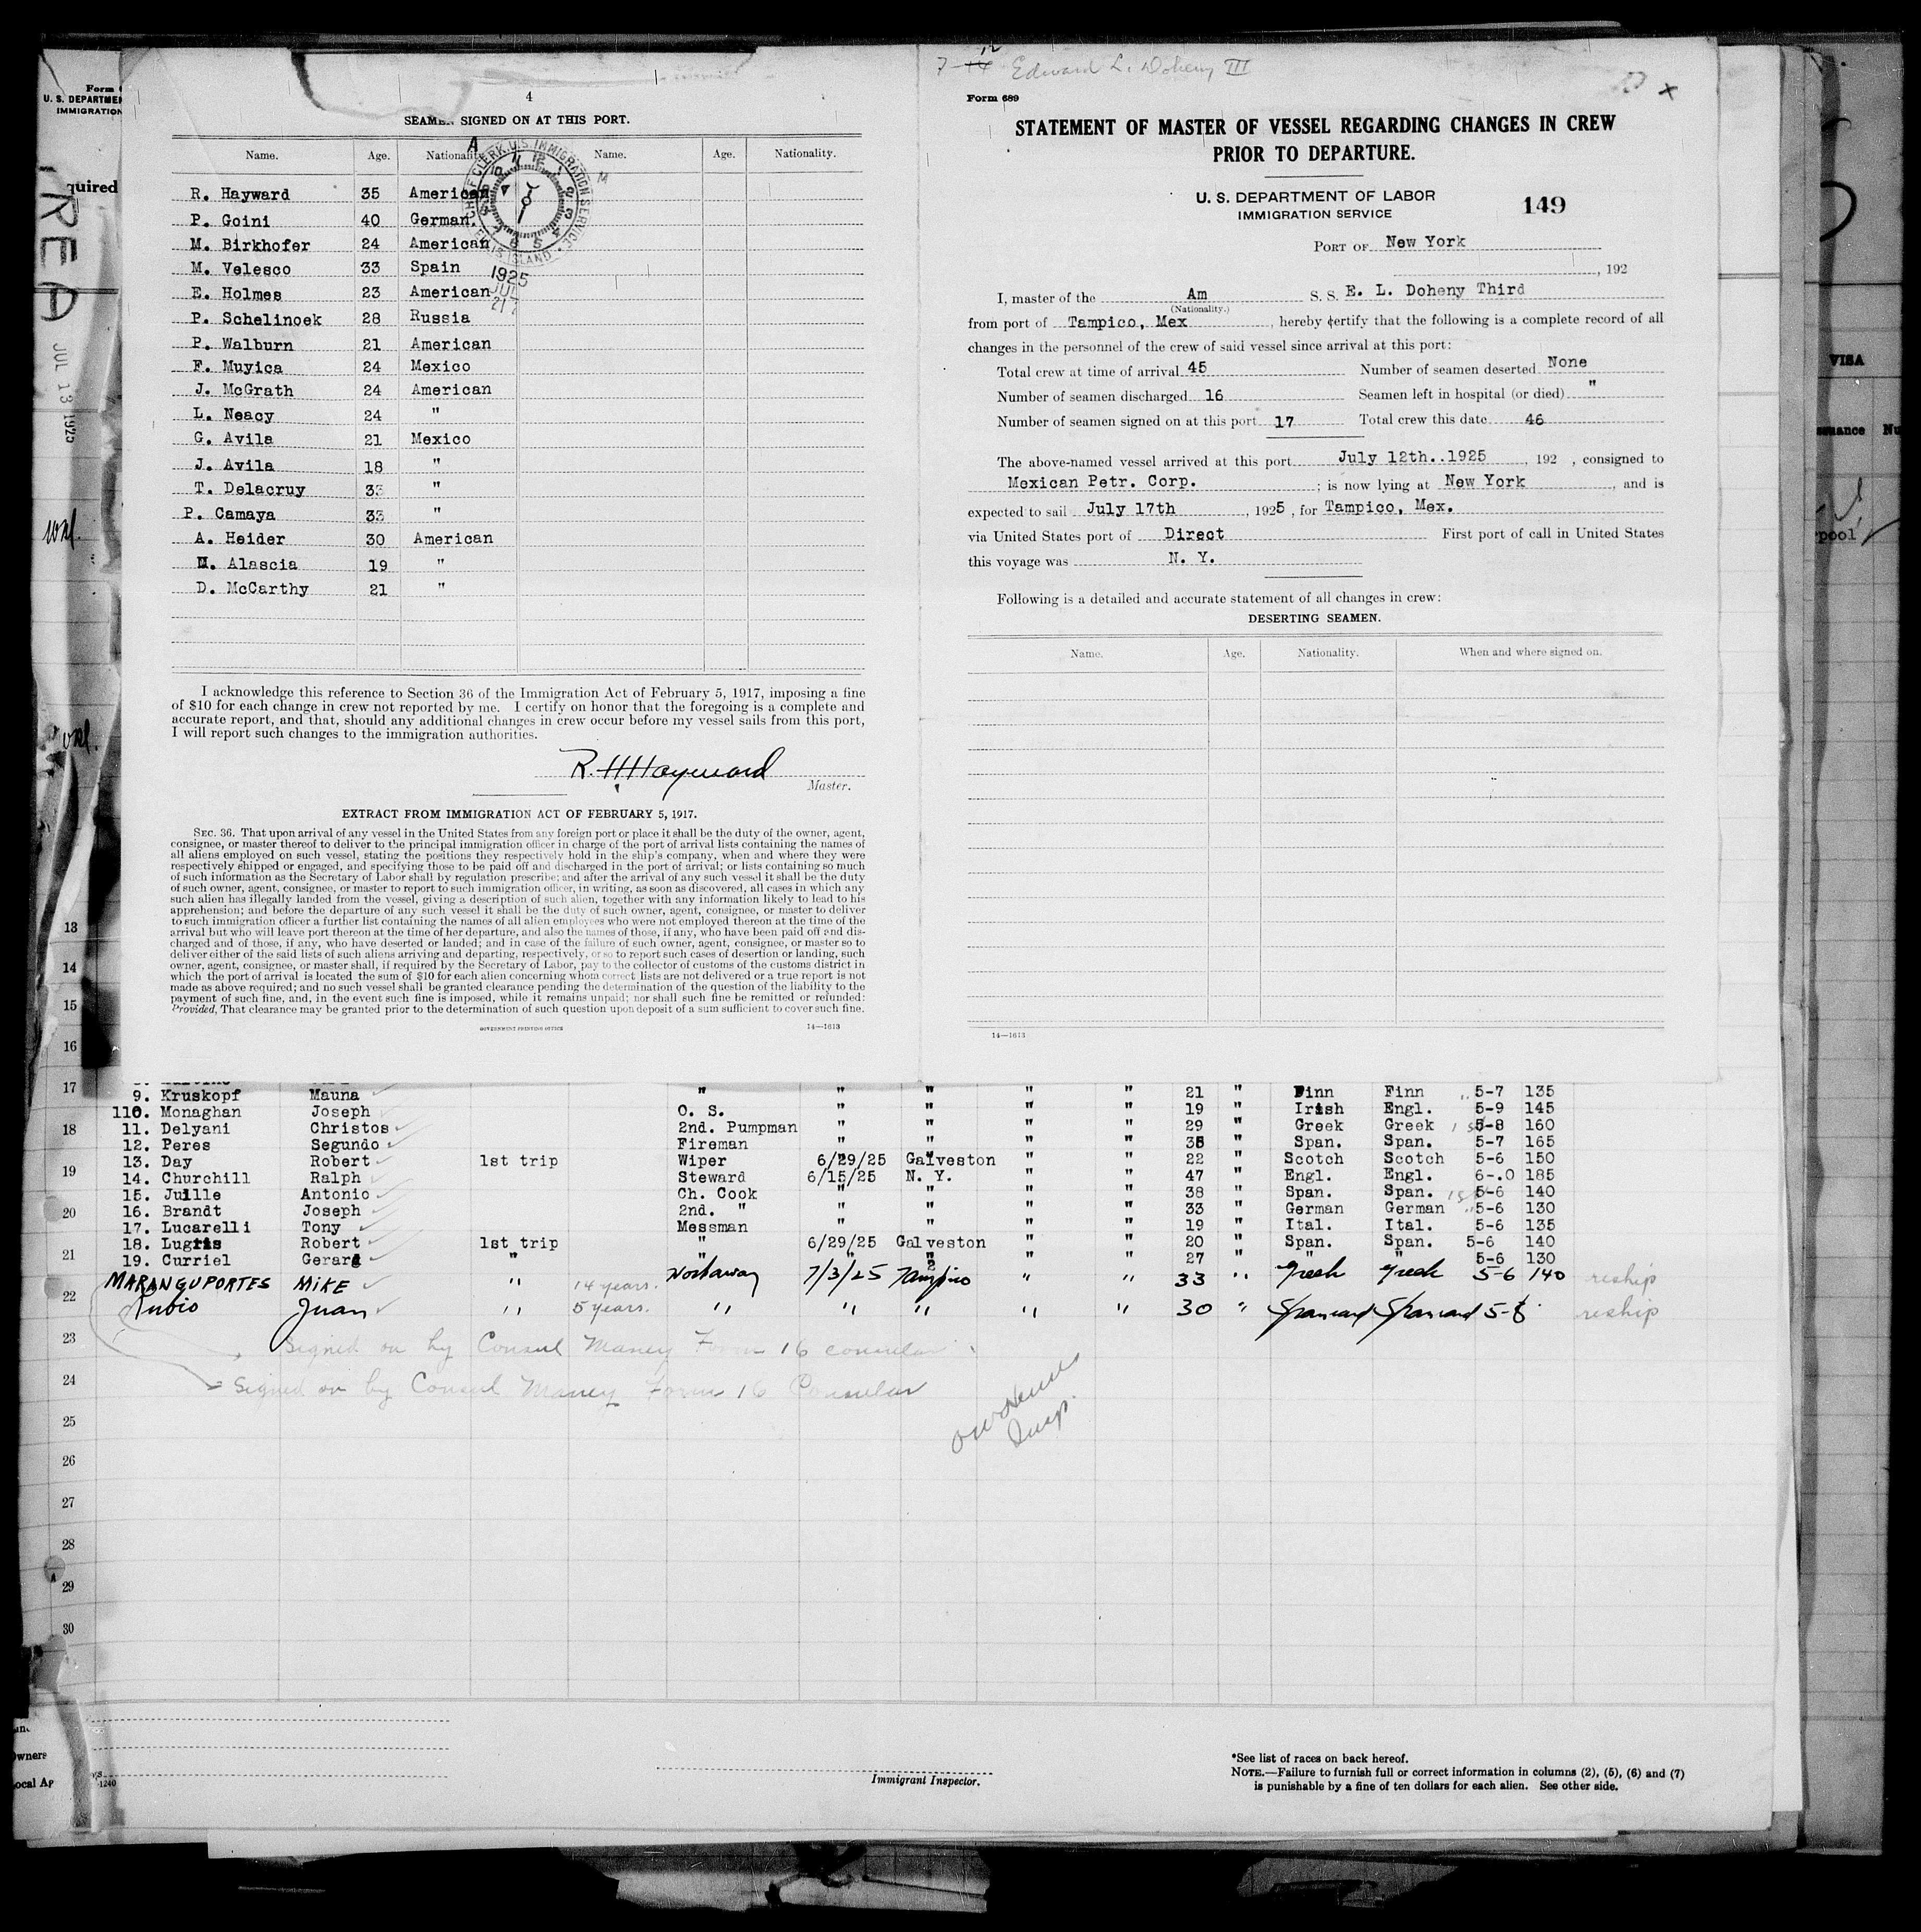 4
SEAMEN SIGNED ON AT THIS PORT.
Name. Age. Nationality. Name. Age. Nationality.
R. Hayward 35 American
P. Goini 40 German.
M. Birkhofer 24 American
M. Velesco 33 Spain
E. Holmes 23 American
P. Schelinoek 28 Russia
P. Walburn 21 American
F. Muyica 24 Mexico
J. McGrath 24 American
L. Neacy 24 "
G. Avila 21 Mexico
J. Avila 18 "
T. Delacruy 33 "
P. Camaya 33 "
A. Heider 30 American
M. Alascia 19 "
D. McCarthy 21 "
CHIEF CLERK U.S. IMMIGRATION SERVICE
ELLIS ISLAND
1925
JUL
21
I acknowledge this reference to Section 36 of the Immigration Act of February 5, 1917, imposing a fine
of $10 for each change in crew not reported by me. I certify on honor that the foregoing is a complete and
accurate report, and that, should any additional changes in crew occur before my vessel sails from this port,
I will report such changes to the immigration authorities.
R. H. Hayward
Master.
EXTRACT FROM IMMIGRATION ACT OF FEBRUARY 5, 1917.
SEC. 36. That upon arrival of any vessel in the United States from any foreign port or place it shall be the duty of the owner, agent,
consignee, or master thereof to deliver to the principal immigration officer in charge of the port of arrival lists containing the names of
all aliens employed on such vessel, stating the positions they respectively hold in the ship's company, when and where they were
respectively shipped or engaged, and specifying those to be paid off and discharged in the port of arrival; or lists containing so much
of such information as the Secretary of Labor shall by regulation prescribe; and after the arrival of any such vessel it shall be the duty
of such owner, agent, consignee, or master to report to such immigration officer, in writing, as soon as discovered, all cases in which any
such alien has illegally landed from the vessel, giving a description of such alien, together with any information likely to lead to his
apprehension; and before the departure of any such vessel it shall be the duty of such owner, agent, consignee, or master to deliver
to such immigration officer a further list containing the names of all alien employees who were not employed thereon at the time of the
arrival but who will leave port thereon at the time of her departure, and also the names of those, if any, who have been paid off and dis-
charged and of those, if any, who have deserted or landed; and in case of the failure of such owner, agent, consignee, or master so to
deliver either of the said lists of such aliens arriving and departing, respectively, or so to report such cases of desertion or landing, such
owner, agent, consignee, or master shall, if required by the Secretary of Labor, pay to the collector of customs of the customs district in
which the port of arrival is located the sum of $10 for each alien concerning whom correct lists are not delivered or a true report is not
made as above required; and no such vessel shall be granted clearance pending the determination of the question of the liability to the
payment of such fine, and, in the event such fine is imposed, while it remains unpaid; nor shall such fine be remitted or refunded:
Provided, That clearance may be granted prior to the determination of such question upon deposit of a sum sufficient to cover such fine.
GOVERNMENT PRINTING OFFICE 14—1613
Edward L. Doheny III
Form 689
STATEMENT OF MASTER OF VESSEL REGARDING CHANGES IN CREW
PRIOR TO DEPARTURE.
U. S. DEPARTMENT OF LABOR
IMMIGRATION SERVICE
149
PORT OF New York
, 192
I, master of the Am S. S. E. L. Doheny Third
(Nationality.)
from port of Tampico, Mex , hereby certify that the following is a complete record of all
changes in the personnel of the crew of said vessel since arrival at this port:
Total crew at time of arrival 45 Number of seamen deserted None
Number of seamen discharged 16 Seamen left in hospital (or died) "
Number of seamen signed on at this port 17 Total crew this date 46
The above-named vessel arrived at this port July 12th..1925 , 192 , consigned to
Mexican Petr. Corp. ; is now lying at New York , and is
expected to sail July 17th , 1925 , for Tampico, Mex.
via United States port of Direct First port of call in United States
this voyage was N. Y.
Following is a detailed and accurate statement of all changes in crew:
DESERTING SEAMEN.
Name. Age. Nationality. When and where signed on.
14—1613
Form
U. S. DEPARTMEN
IMMIGRATION
quired
JUL 13 1925
VISA
suance Nu
pool
13
14
15
16
17
18
19
20
21
22
23
24
25
26
27
28
29
30
9. Kruskopf Mauna " " " " " 21 " Finn Finn 5-7 135
110. Monaghan Joseph O. S. " " " " 19 " Irish Engl. 5-9 145
11. Delyani Christos 2nd. Pumpman " " " " 29 " Greek Greek 5-8 160
12. Peres Segundo Fireman " " " " 38 " Span. Span. 5-7 165
13. Day Robert 1st trip Wiper 6/29/25 Galveston " " 22 " Scotch Scotch 5-6 150
14. Churchill Ralph Steward 6/15/25 N. Y. " " 47 " Engl. Engl. 6-.0 185
15. Juille Antonio Ch. Cook " " " " 38 " Span. Span. 5-6 140
16. Brandt Joseph 2nd. " " " " " 33 " German German 5-6 130
17. Lucarelli Tony Messman " " " " 19 " Ital. Ital. 5-6 135
18. Lugris Robert 1st trip " 6/29/25 Galveston " " 20 " Span. Span. 5-6 140
19. Curriel Gerard " " " " " " 27 " " " 5-6 130
MARANGUPORTES MIKE " 14 years. Workaway 7/3/25 Tampico " " 33 " Greek Greek 5-6 140 reship
Rubio Juan " 5 years. " " " " " 30 " Spaniard Spaniard 5-8 reship
Signed on by Consul Maney Form 16 consular
Signed on by Consul Maney Form 16 Consular
Insp.
Immigrant Inspector.
*See list of races on back hereof.
NOTE.—Failure to furnish full or correct information in columns (2), (5), (6) and (7)
is punishable by a fine of ten dollars for each alien. See other side.
wners
ocal Ag
-1240